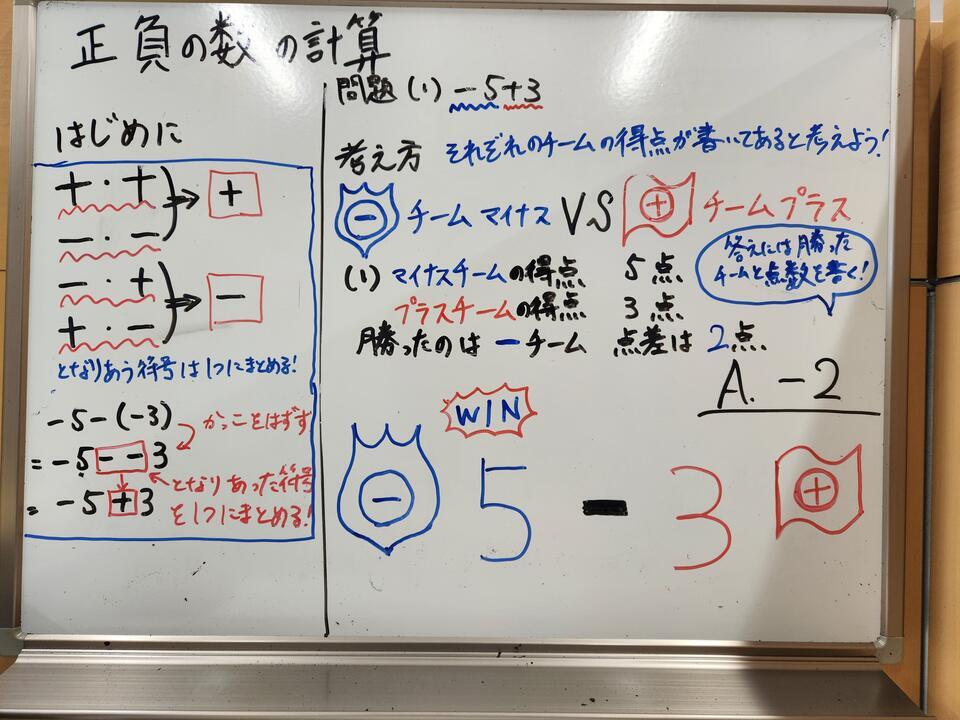 正負の数の計算
はじめに
+・+
ー・ー
⇒ +
ー・+
+・ー
⇒ ー
となりあう符号は1つにまとめる!
-5-(-3)
かっこをはずす
= -5--3
となりあった符号
を1つにまとめる!
= -5+3
問題 (1) -5+3
考え方 それぞれのチームの得点が書いてあると考えよう!
ー チームマイナス VS + チームプラス
答えには勝った
チームと点数を書く!
(1) マイナスチームの得点 5点
プラスチームの得点 3点
勝ったのは ーチーム 点差は 2点.
A. -2
WIN
ー 5 - 3 +